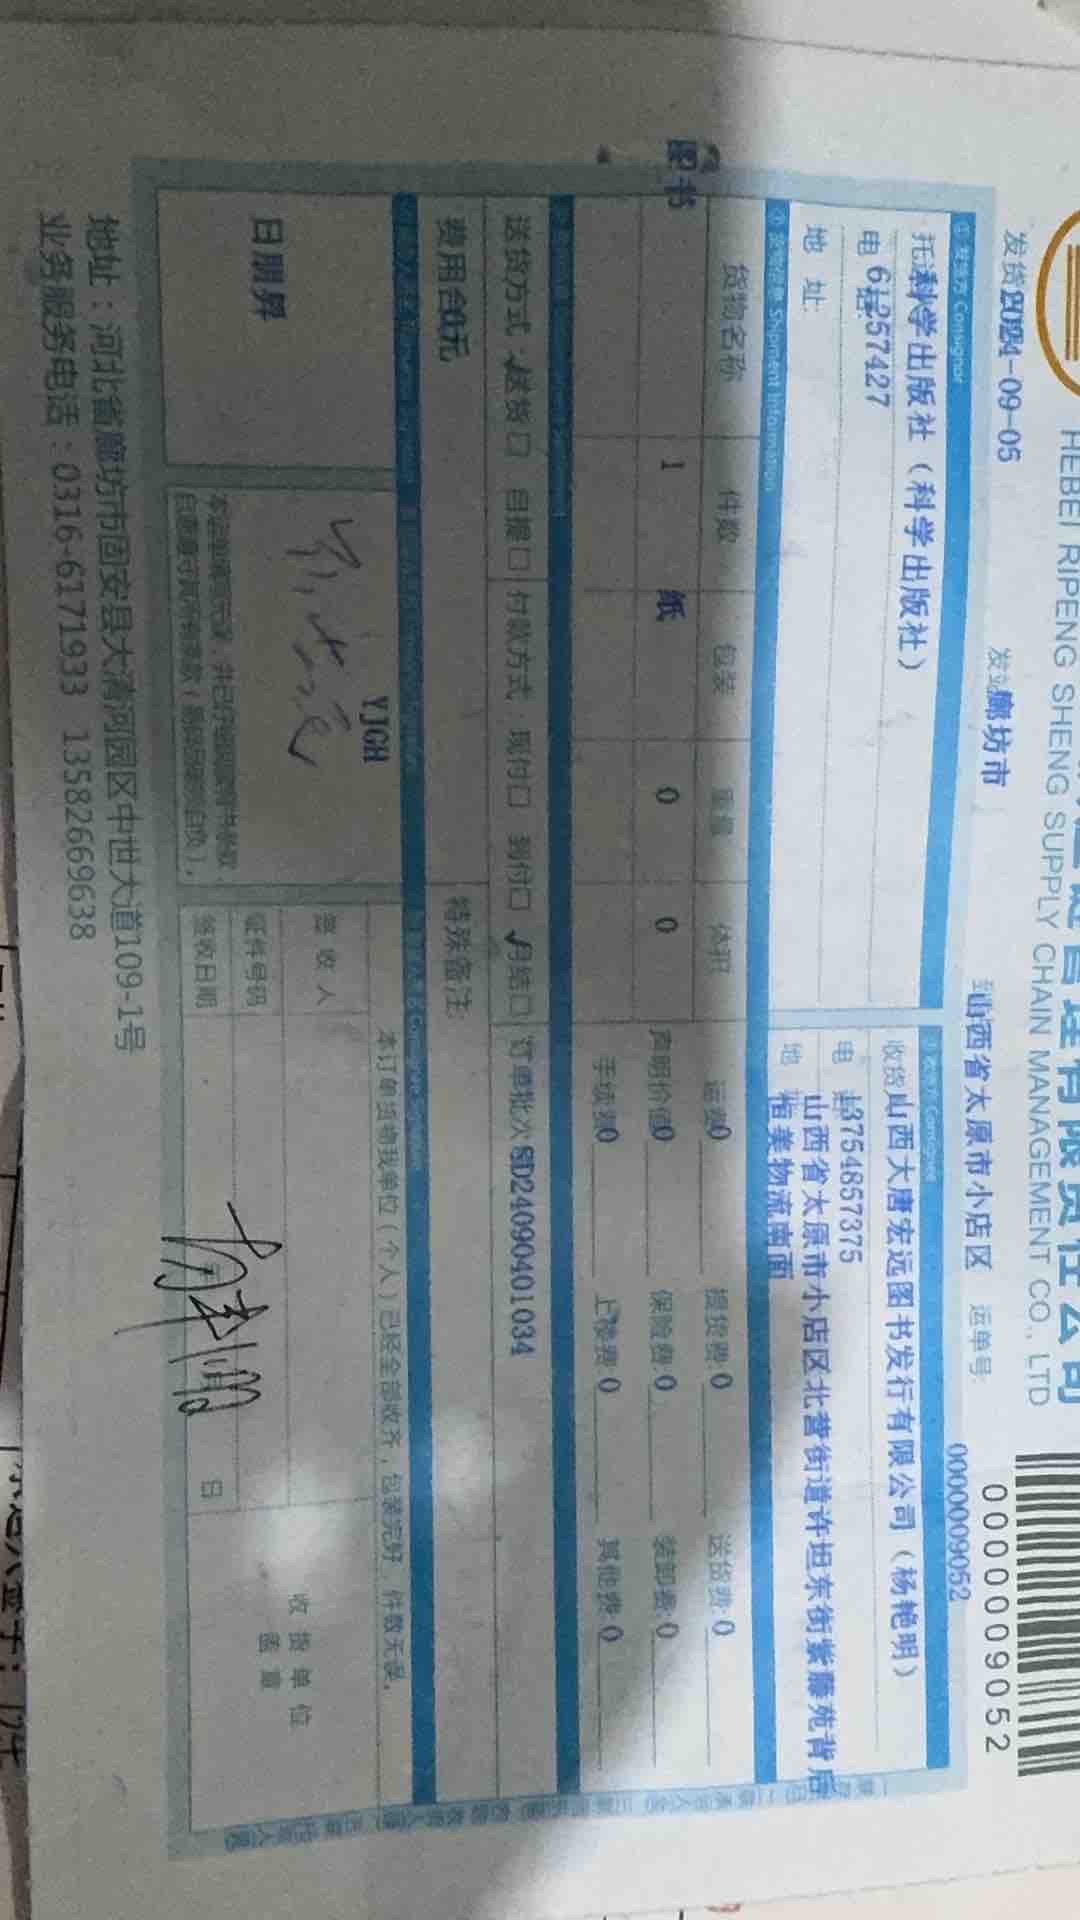 链管理有限责任公司
HEBEI RIPENG SHENG SUPPLY CHAIN MANAGEMENT CO., LTD
0000009052
0000009052
发货 2024-09-05 发站 廊坊市 到 山西省太原市小店区 运单号:
① 发货方 Consignor
托运 科学出版社（科学出版社）
电 话 61257427
地 址:
收货 山西大唐宏远图书发行有限公司（杨艳明）
电 话 13754857375
地 址 山西省太原市小店区北营街道许坦东街紫藤苑背后
楷美物流南面
③ 货物信息 Shipment Information
货物名称 件数 包装 重量 体积 运费 0 提货费: 0 送货费: 0
图书 1 纸 0 0 声明价值 0 保险费: 0 装卸费: 0
手续费 0 上楼费: 0 其他费: 0
送货方式: 送货口 自提口 付款方式: 现付口 到付口 月结口 订单批次 SD24090401034
费用合 0元 特殊备注:
日朋昇
YJGH
本订单货物我单位（个人）已经全部收齐，包装完好，件数无误。
签 收 人
证件号码
签收日期 日
收 货 单 位
盖 章
地址：河北省廊坊市固安县大清河园区中世大道109-1号
业务服务电话：0316-6171933 13582669638